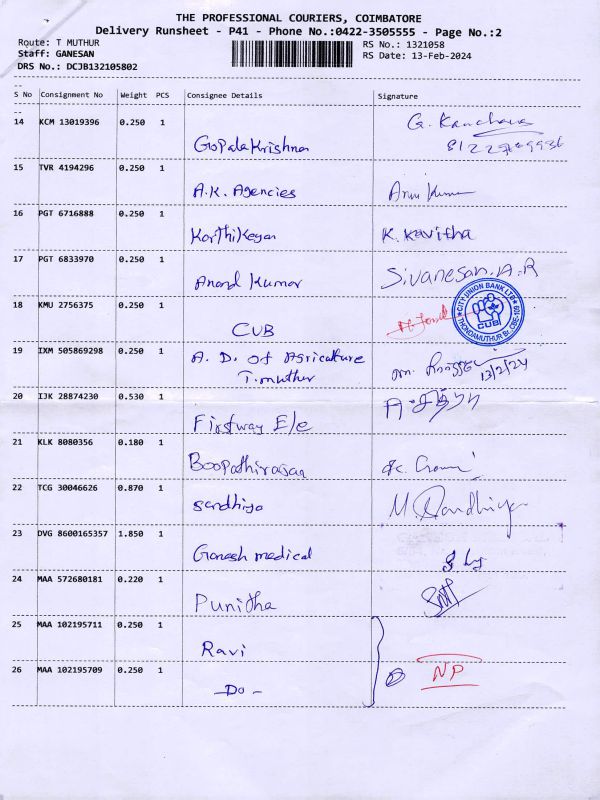 THE PROFESSIONAL COURIERS, COIMBATORE
Delivery Runsheet - P41 - Phone No.:0422-3505555 - Page No.:2
Route: T MUTHUR
RS No.: 1321058
Staff: GANESAN
RS Date: 13-Feb-2024
DRS No.: DCJB132105802
S No Consignment No Weight PCS Consignee Details Signature
14 KCM 13019396 0.250 1 Gopalakrishnan G. Kanchana
15 TVR 4194296 0.250 1 A.K. Agencies Arun Kumar
16 PGT 6716888 0.250 1 Karthikeyan K. Kavitha
17 PGT 6833970 0.250 1 Anand Kumar Sivanesan.A.R
18 KMU 2756375 0.250 1 CUB
CITY UNION BANK LTD
CUB
THONDAMUTHUR Br. CBE-109
19 IXM 505869298 0.250 1 A. D. of Agriculture
T.muthur 13/2/24
20 IJK 28874230 0.530 1 Firstway E/e
21 KLK 8080356 0.180 1 Boopathirajan
22 TCG 30046626 0.870 1 Sandhiya M. Sandhiya
23 DVG 8600165357 1.850 1 Ganesh medical
24 MAA 572680181 0.220 1 Punitha
25 MAA 102195711 0.250 1 Ravi
26 MAA 102195709 0.250 1 - Do - NP